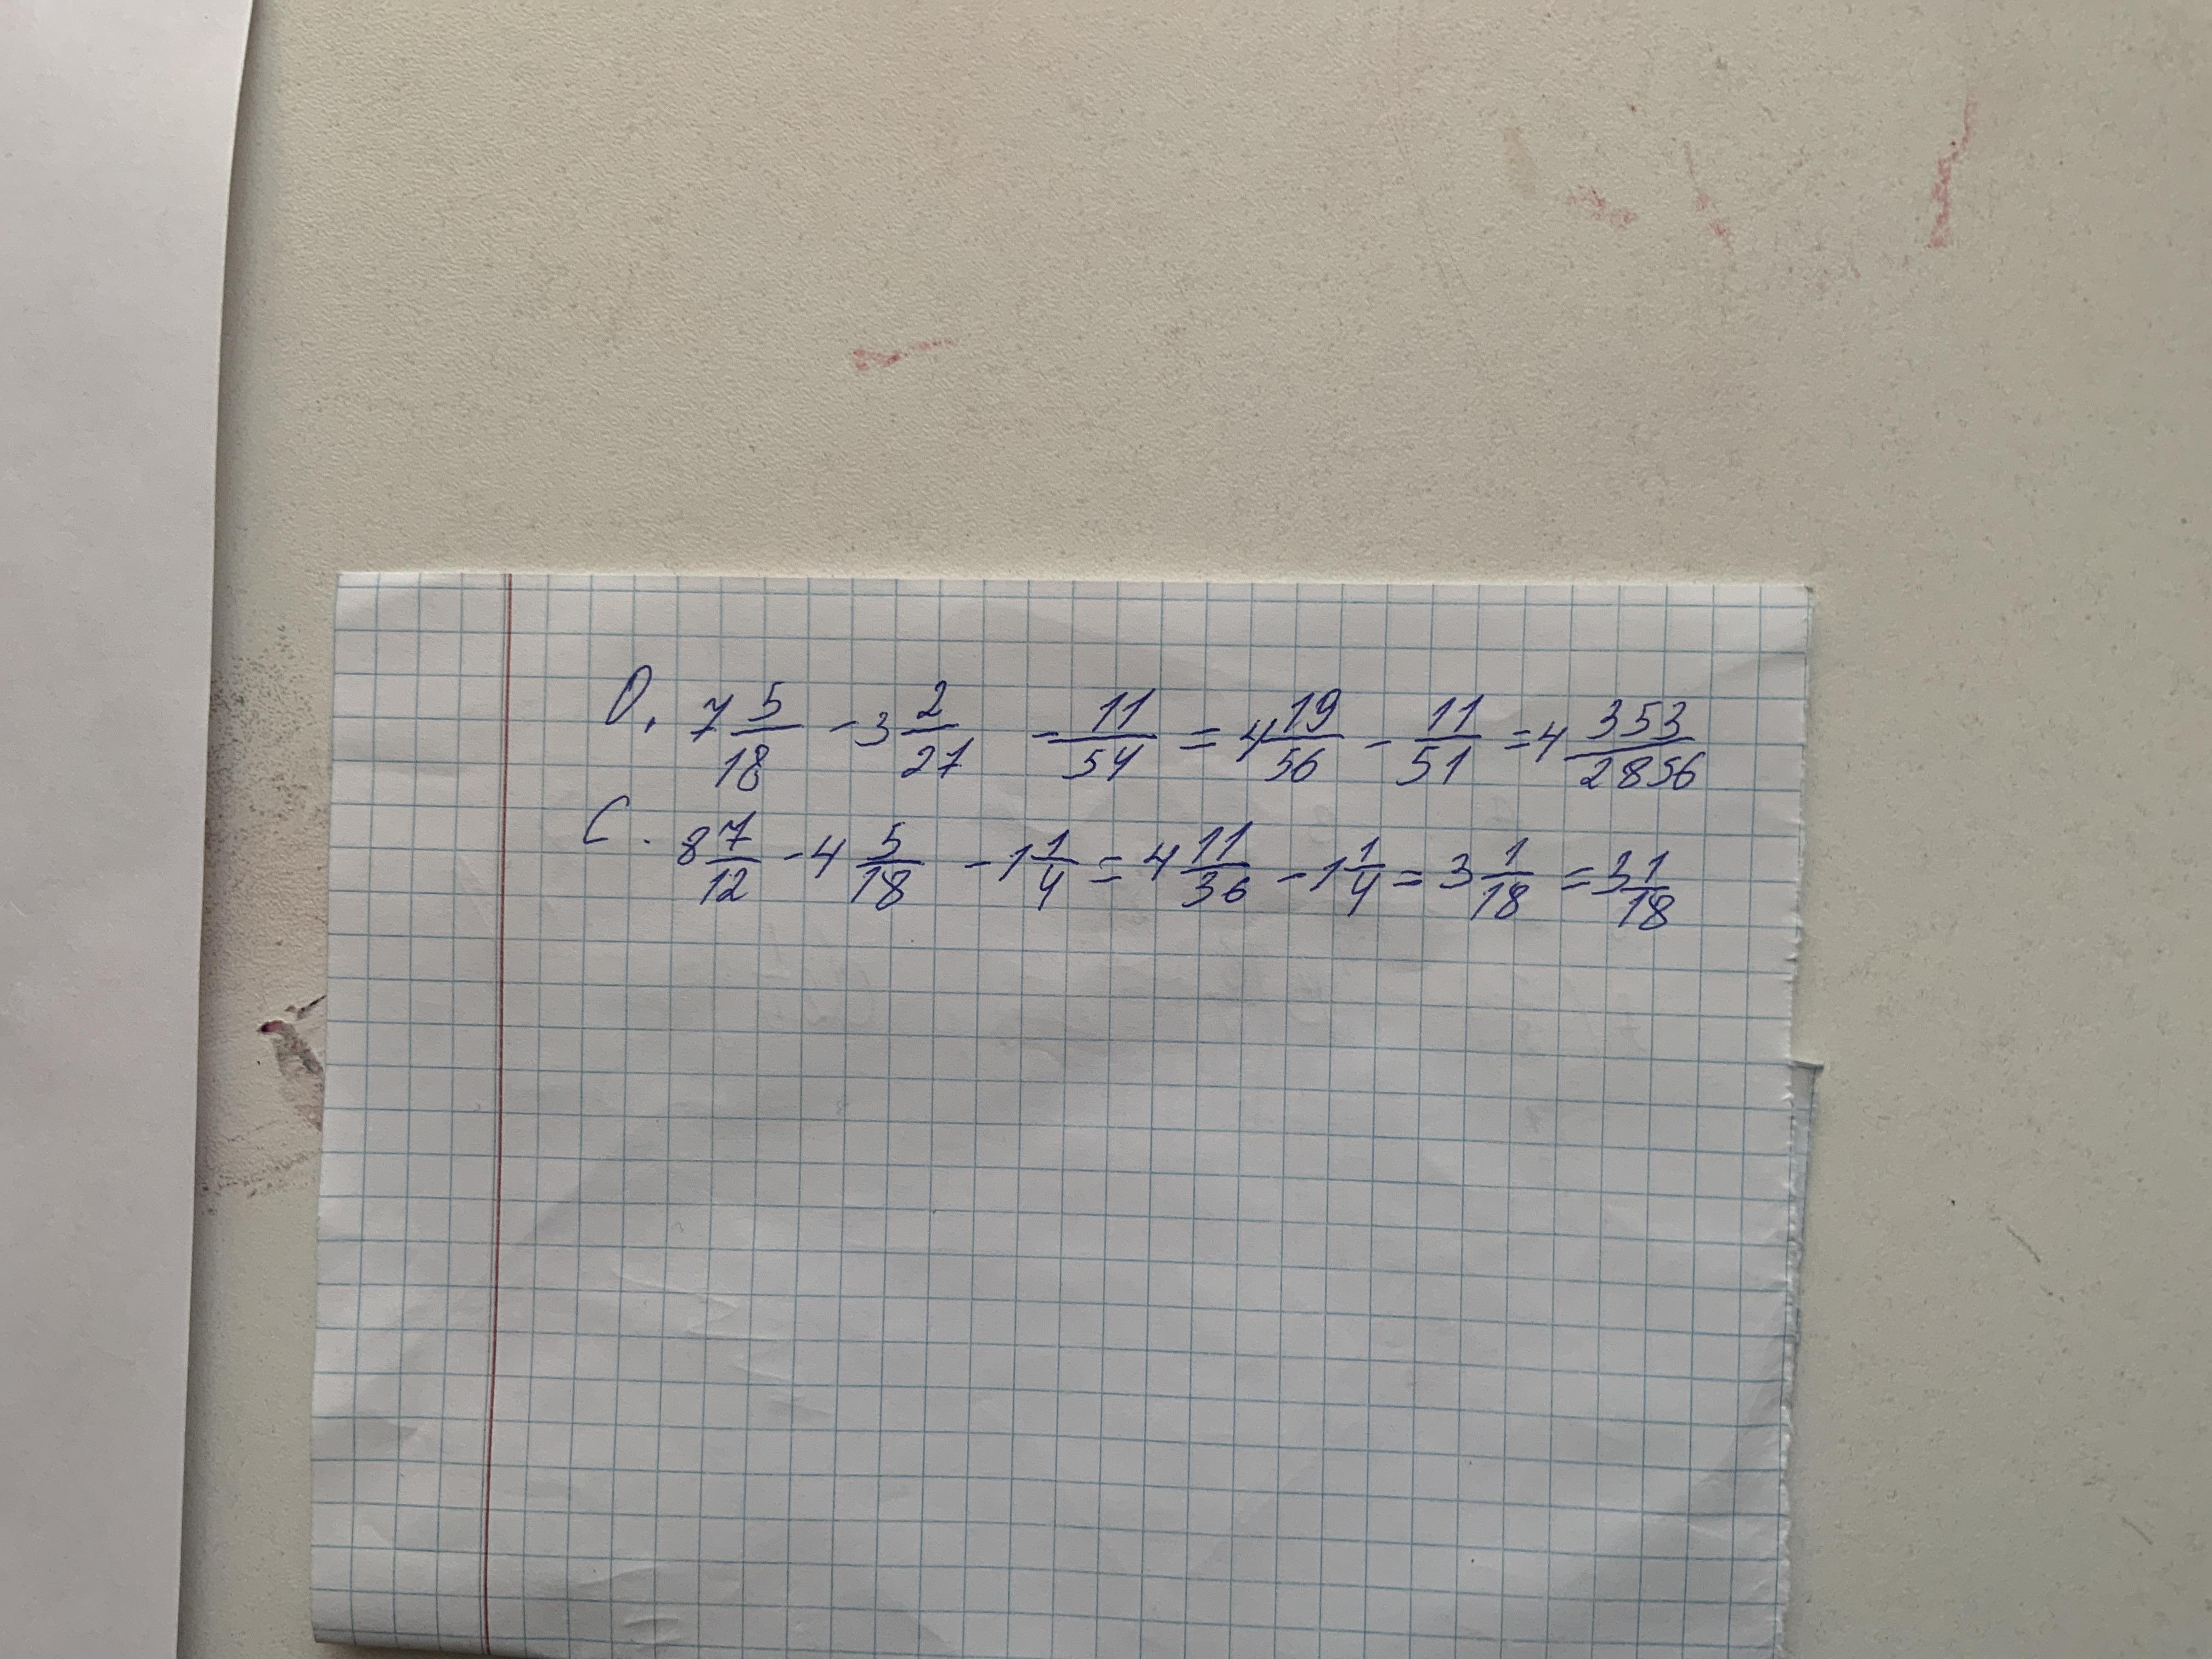 O. 7 5/18 - 3 2/27 - 11/54 = 4 19/56 - 11/51 = 4 353/2856
C. 8 7/12 - 4 5/18 - 1 1/4 = 4 11/36 - 1 1/4 = 3 1/18 = 3 1/18